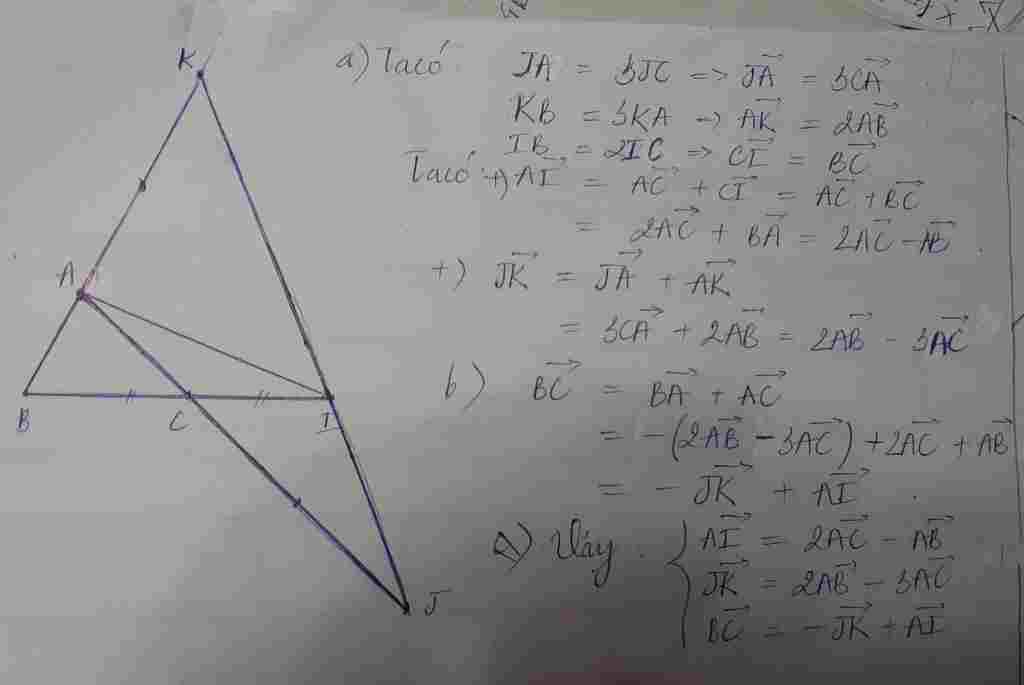 K
A
B
C
I
J
a) Ta có JA = 3JC => \overrightarrow{JA} = 3\overrightarrow{CA}
KB = 3KA -> \overrightarrow{AK} = 2\overrightarrow{AB}
IB = 2IC => \overrightarrow{CI} = \overrightarrow{BC}
Ta có +) \overrightarrow{AI} = \overrightarrow{AC} + \overrightarrow{CI} = \overrightarrow{AC} + \overrightarrow{BC}
= 2\overrightarrow{AC} + \overrightarrow{BA} = 2\overrightarrow{AC} - \overrightarrow{AB}.
+) \overrightarrow{JK} = \overrightarrow{JA} + \overrightarrow{AK}
= 3\overrightarrow{CA} + 2\overrightarrow{AB} = 2\overrightarrow{AB} - 3\overrightarrow{AC}
b) \overrightarrow{BC} = \overrightarrow{BA} + \overrightarrow{AC}
= -(2\overrightarrow{AB} - 3\overrightarrow{AC}) + 2\overrightarrow{AC} + \overrightarrow{AB}
= -\overrightarrow{JK} + \overrightarrow{AI}.
Vậy. \overrightarrow{AI} = 2\overrightarrow{AC} - \overrightarrow{AB}
\overrightarrow{JK} = 2\overrightarrow{AB} - 3\overrightarrow{AC}
\overrightarrow{BC} = -\overrightarrow{JK} + \overrightarrow{AI}